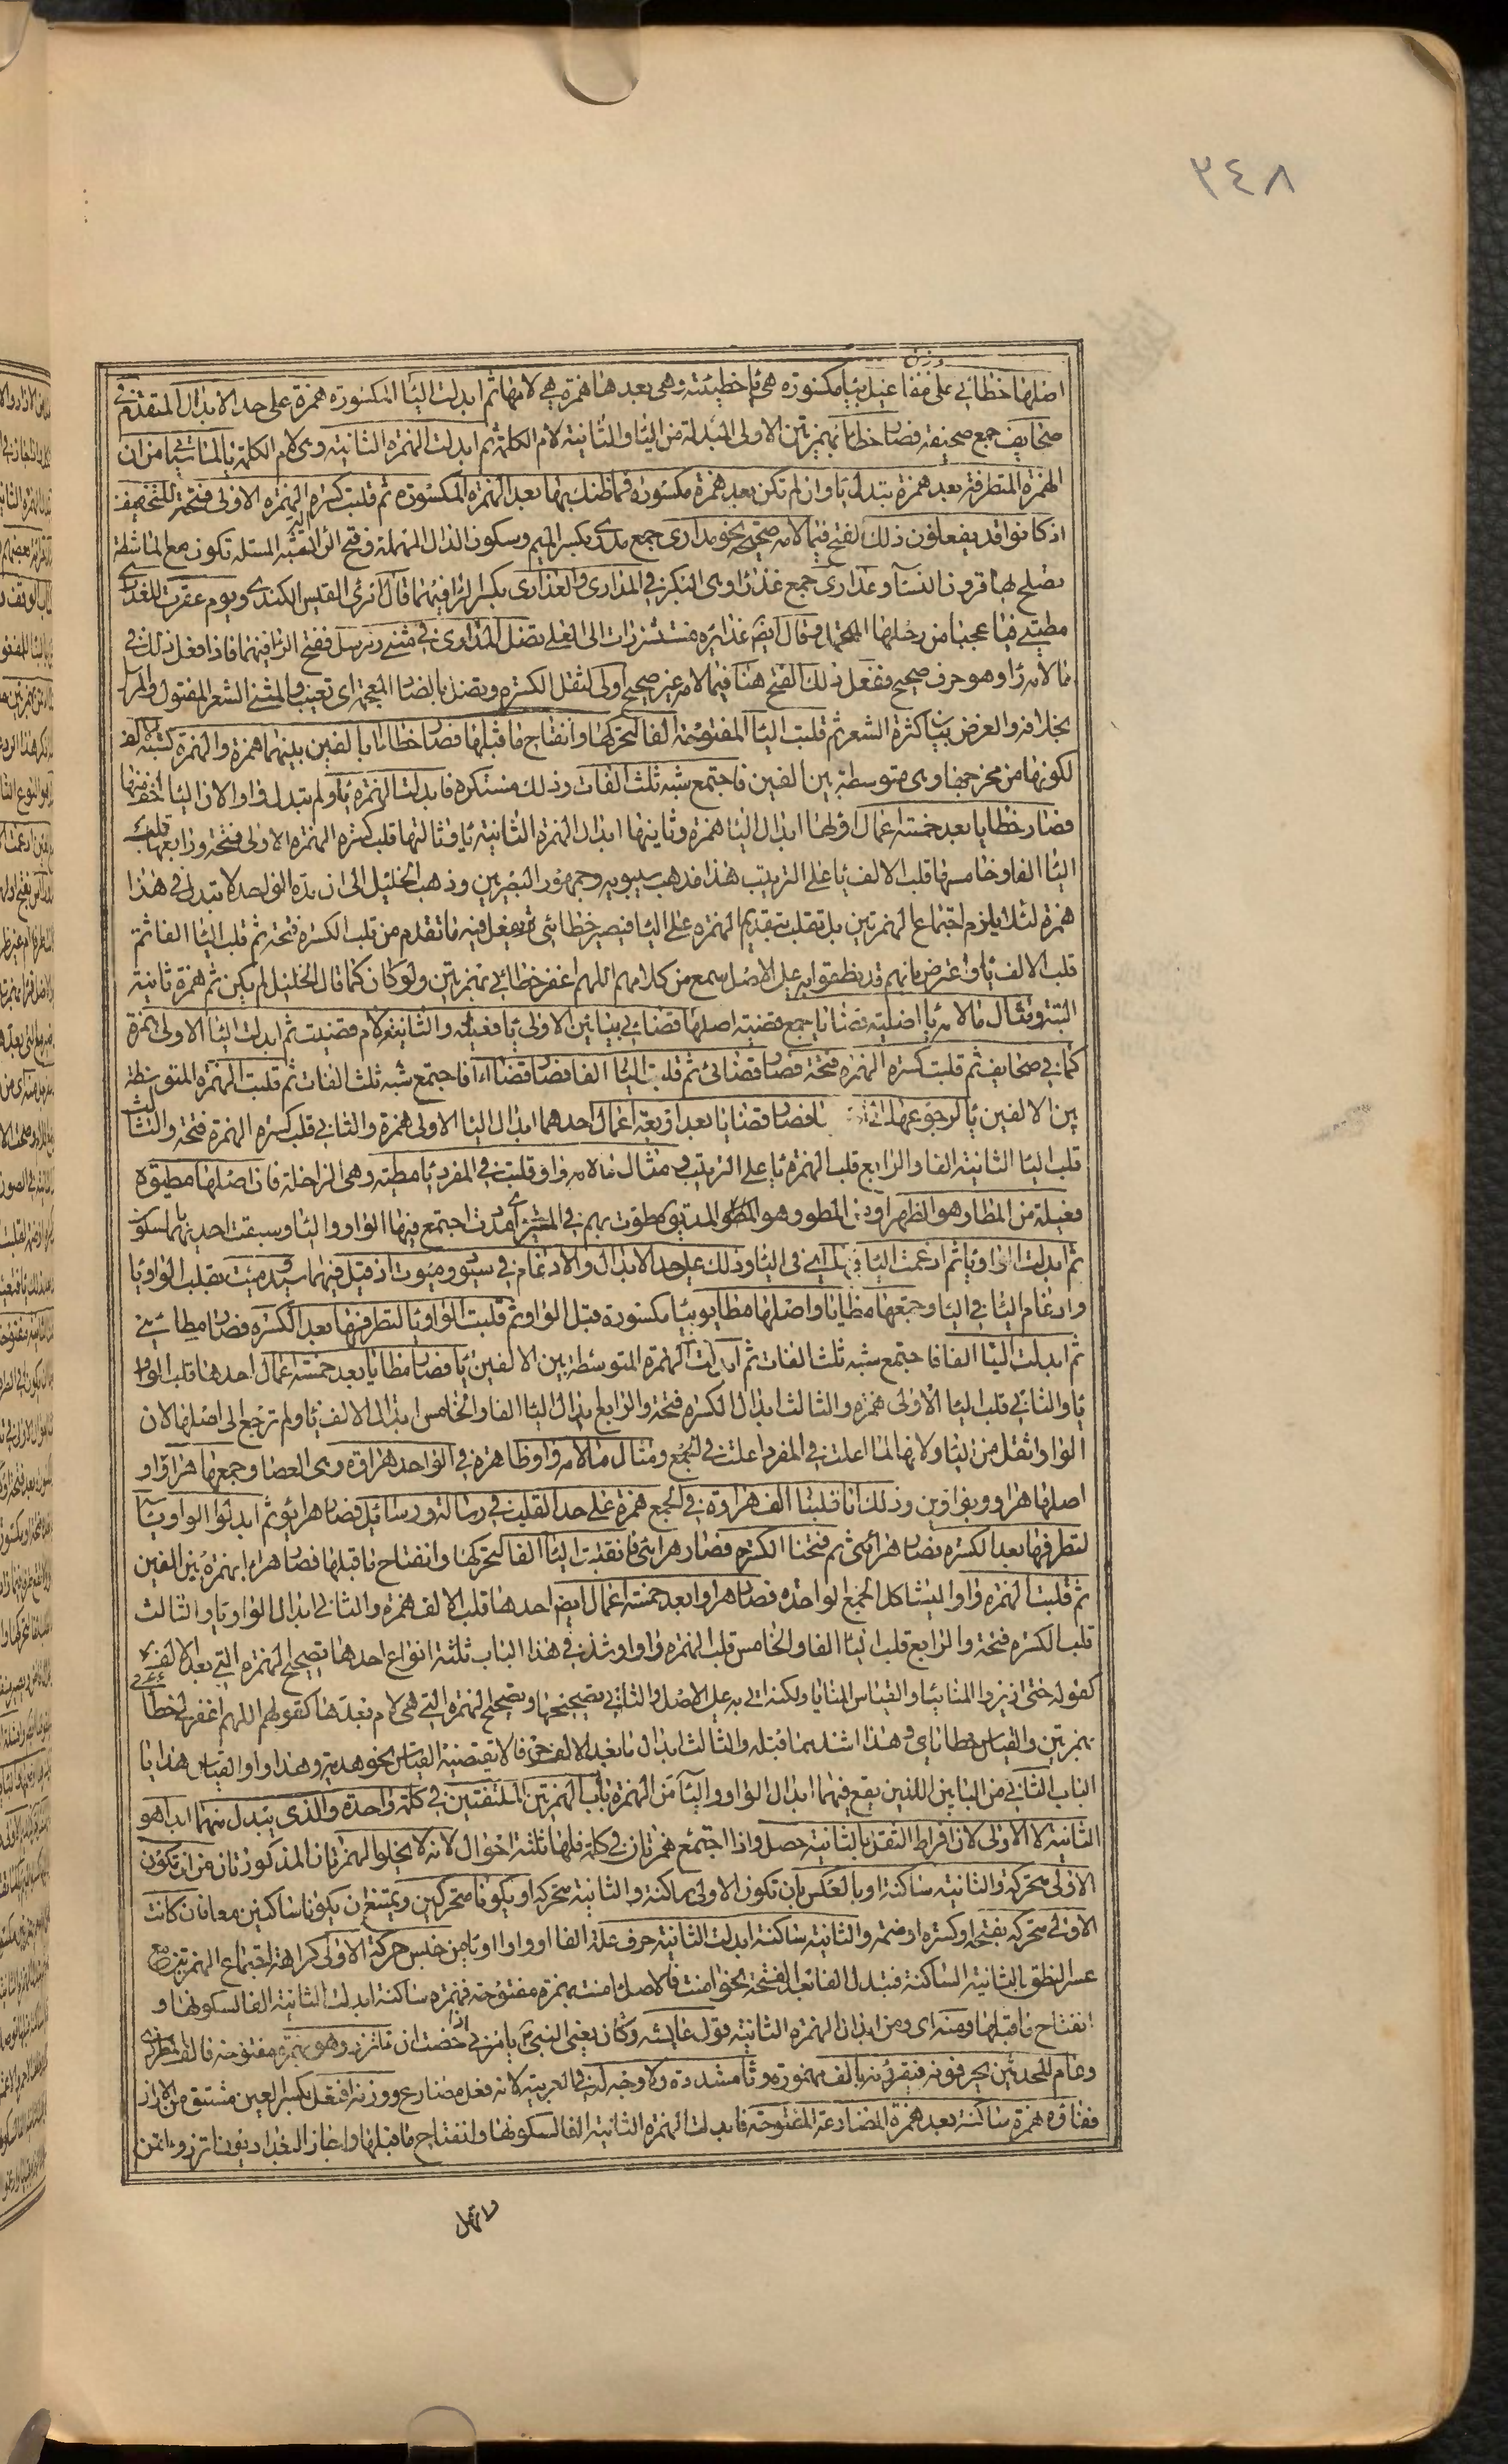 ٣٤٨
وزن
اصلها خطايئ على مفاعيل بياء مكسورة هي ياء خطيئة وهمزة بعدها هي لامها ثم ابدلت الياء المكسورة همزة على حد الابدال المتقدم في
صحايف جمع صحيفة فصار خطائئ بهمزتين الاولى المبدلة من الياء والثانية لام الكلمة ثم ابدلت الهمزة الثانية وهي لام الكلمة ياء لما سيأتي من ان
الهمزة المتطرفة بعد همزة تبدل ياء وان لم تكن بعد همزة مكسورة فما ظنك بها بعد الهمزة المكسورة ثم قلبت كسرة الهمزة الاولى فتحة للتخفيف
اذ كانوا قد يفعلون ذلك الفتح فيما لامه صحيحة نحو مدارى جمع مدرى بكسر الميم وسكون الدال المهملة وفتح الراء الة تشبه المسلة تكون مع الماشطة
تصلح بها قرون النساء وعذارى جمع عذراء وهي البكر في المدارى والعذارى بكسر الراء فيهما قال امرئ القيس الكندي ويوم عقرت للعذارى
مطيتي فيا عجبا من رحلها المتحمل وقال ايضا غدائره مستشزرات الى العلى تضل المدارى في مثنى ومرسل ففتح الراء فيهما فاذا فعل ذلك في
ما لامه راء وهو حرف صحيح ففعل ذلك الفتح هنا فيما لامه غير صحيح اولى لثقل الكسرة وتضل بالضاد المعجمة اي تغيب والمثنى الشعر المفتول والمرسل
بخلافه والغرض بيان كثرة الشعر ثم قلبت الياء المفتوحة الفا لتحركها وانفتاح ما قبلها فصار خطاءا بالفين بينهما همزة والهمزة تشبه الالف
لكونها من مخرجها وهي متوسطة بين الفين فاجتمع شبه ثلث الفات وذلك مستكره فابدلت الهمزة ياء ولم تبدل واوا لان الياء اخف منها
فصار خطايا بعد خمسة اعمال اولها ابدال الياء همزة وثانيها ابدال الهمزة الثانية ياء وثالثها قلب كسرة الهمزة الاولى فتحة ورابعها قلب
الياء الفا وخامسها قلب الالف ياء على الترتيب هذا مذهب سيبويه وجمهور البصريين وذهب الخليل الى ان مدة الواحد لا تبدل في هذا
همزة لئلا يلزم اجتماع الهمزتين بل تقلب بتقديم الهمزة على الياء فيصير خطائي ثم يفعل فيه ما تقدم من قلب الكسرة فتحة ثم قلب الياء الفا ثم
قلب الالف ياء واعترض بانهم قد نطقوا به على الاصل سمع من كلامهم اللهم اغفر خطائئي بهمزتين ولو كان كما قال الخليل لم يكن ثم همزة ثانية
البتة ومثال ما لامه ياء اصلية قضايا جمع قضية اصلها قضايي بيائين الاولى ياء فعيلة والثانية لام قضيت ثم ابدلت الياء الاولى همزة
كما في صحايف ثم قلبت كسرة الهمزة فتحة فصار قضائي ثم قلبت الياء الفا فصار قضاءا فاجتمع شبه ثلث الفات ثم قلبت الهمزة المتوسطة
بين الالفين ياء لرجوعها فصار قضايا بعد اربعة اعمال احدهما ابدال الياء الاولى همزة والثاني قلب كسرة الهمزة فتحة والثالث
قلب الياء الثانية الفا والرابع قلب الهمزة ياء على الترتيب ومثال ما لامه واو قلبت في المفرد ياء مطية وهي الراحلة فان اصلها مطيوة
فعيلة من المطا وهو الظهر او من المطو وهو المد يق مطوت بهم في السير اي مددت اجتمع فيها الواو والياء وسبقت احديهما بالسكون
ثم ابدلت الواو ياء ثم ادغمت الياء في الياء وذلك على حد الابدال والادغام في سيود وميوت اذ قيل فيهما سيد وميت بقلب الواو ياء
وادغام الياء في الياء وجمعها مطايا واصلها مطايو بياء مكسورة قبل الواو ثم قلبت الواو ياء لتطرفها بعد الكسرة فصار مطايي
ثم ابدلت الياء الفا فاجتمع شبه ثلث الفات ثم ابدلت الهمزة المتوسطة بين الالفين ياء فصار مطايا بعد خمسة اعمال احدها قلب الواو
ياء والثاني قلب الياء الاولى همزة والثالث ابدال الكسرة فتحة والرابع ابدال الياء الفا والخامس ابدال الالف ياء ولم ترجع الى اصلها لان
الواو اثقل من الياء ولانها لما اعلت في المفرد اعلت في الجمع ومثال ما لامه واو ظاهرة في الواحد هراوة وهي العصا وجمعها هراوا
اصلها هراوو بواوين وذلك انا قلبنا الف هراوة في الجمع همزة على حد القلب في رسالة ورسائل فصار هرائو ثم ابدلوا الواو ياء
لتطرفها بعد الكسرة فصار هرائي ثم فتحنا الكسرة فصار هرائي فانقلبت الياء الفا لتحركها وانفتاح ما قبلها فصار هراءا بهمزة بين الفين
ثم قلبت الهمزة واوا ليشاكل الجمع الواحدة فصار هراوا بعد خمسة اعمال ايضا احدها قلب الالف همزة والثاني ابدال الواو ياء والثالث
قلب الكسرة فتحة والرابع قلب الياء الفا والخامس قلب الهمزة واوا وشذ في هذا الباب ثلثة انواع احدها تصحيح الهمزة التي بعد الالف
كقوله حتى ازيروا المنائيا والقياس المنايا ولكنه اتى به على الاصل والثاني تصحيحها وتصحيح الهمزة التي هي لام بعدها كقولهم اللهم اغفر لي خطائئي
بهمزتين والقياس خطاياي وهذا اشد مما قبله والثالث ابدال ما بعد الالف حرفا لا يقتضيه القياس نحو هدية وهداوا والقياس هدايا
الباب الثاني من البابين اللذين يقع فيهما ابدال الواو والياء من الهمزة باب الهمزتين الملتقيتين في كلمة واحدة والذي يبدل منهما ابدا هو
الثانية لا الاولى لان افراط الثقل بالثانية حصل واذا اجتمع همزتان في كلمة فلها ثلثة احوال لانه لا يخلوا الهمزتان المذكورتان من ان تكون
الاولى متحركة والثانية ساكنة او بالعكس بان تكون الاولى ساكنة والثانية متحركة او يكونا متحركين ويمتنع ان يكونا ساكنين معا فان كانت
الاولى متحركة بفتحة او كسرة او ضمة والثانية ساكنة ابدلت الثانية حرف علة الفا او واوا او ياء من جنس حركة الاولى كراهة اجتماع الهمزتين مع
عسر النطق بالثانية الساكنة فتبدل الفا بعد الفتحة نحو امنت فالاصل أأمنت بهمزة مفتوحة فهمزة ساكنة ابدلت الثانية الفا لسكونها و
انفتاح ما قبلها ومنه اي ومن ابدال الهمزة الثانية قول عائشة وكان يعني النبي يامرني اذا حضت ان ءاتزر وهو بهمزة مفتوحة فالف
وعام المحدثين يحرفونه فيقرئونه بالف مهموزة وتاء مشددة ولا وجه له في العربية لانه فعل مضارع ووزنه افتعل بكسر العين مشتق من الازار
ففاؤه همزة ساكنة بعد همزة المضارعة المفتوحة فابدلت الهمزة الثانية الفا لسكونها وانفتاح ما قبلها واجاز البغداديون اتزر واتمن